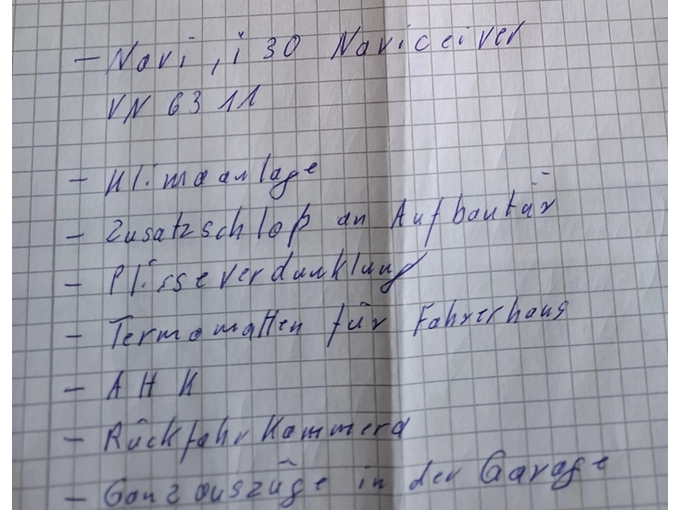 - Navi, i 30 Naviceiver
VN 63 11
- Klimaanlage
- Zusatzschloß an Aufbautür
- Plisseverdunklung
- Termomatten für Fahrerhaus
- AHK
- RückfahrKammera
- Ganzauszüge in der Garage